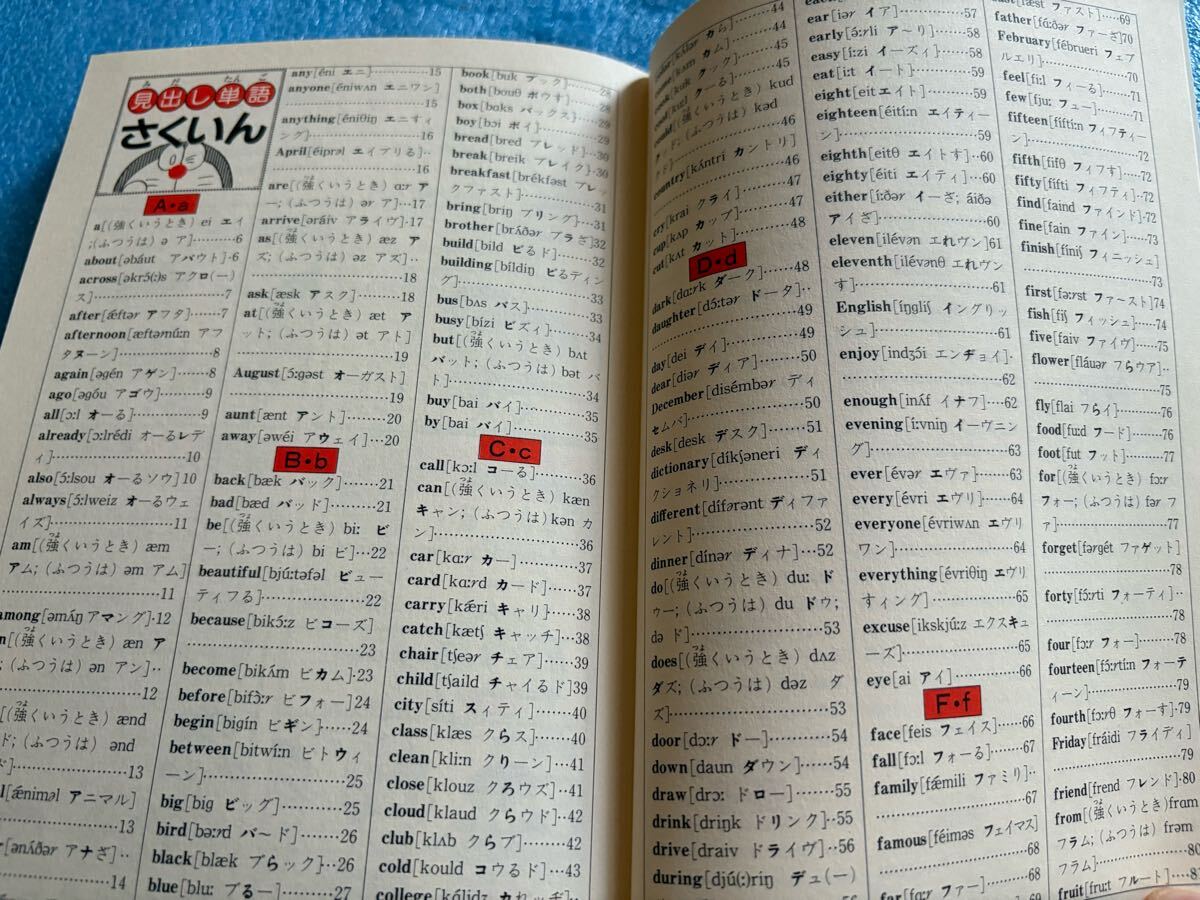 見出し単語
さくいん
A•a
a[(強くいうとき) ei エイ
;(ふつうは) ə ア]………6
about[əbáut アバウト]‥6
across[əkrɔ́(ː)s アクロ(ー)
ス]………………7
after[ǽftər アフタ]……7
afternoon[æftərnúːn アフ
タヌーン]………………8
again[əgén アゲン]……8
ago[əgóu アゴウ]………9
all[ɔːl オーる]…………9
already[ɔːlrédi オーるレデ
ィ]………………10
also[ɔ́ːlsou オーるソウ]10
always[ɔ́ːlweiz オーるウェ
イズ]………………11
am[(強くいうとき) æm
アム; (ふつうは) əm アム]
………………11
among[əmʌ́ŋ アマング]‥12
[(強くいうとき) æn ア
; (ふつうは) ən アン]
………………12
(強くいうとき) ænd
ド; (ふつうは) ənd
………………13
[ǽniməl アニマル]
………………13
[ənʌ́ðər アナざ]‥
………………14
any[éni エニ]…………15
anyone[éniwʌn エニワン]
………………15
anything[éniθiŋ エニすィ
ング]………………16
April[éiprəl エイプりる]
………………16
are[(強くいうとき) ɑːr ア
ー; (ふつうは) ər ア]…17
arrive[əráiv アライヴ]‥17
as[(強くいうとき) æz ア
ズ; (ふつうは) əz アズ]
………………18
ask[æsk アスク]………18
at[(強くいうとき) æt ア
ット; (ふつうは) ət アト]
………………19
August[ɔ́ːgəst オーガスト]
………………19
aunt[ænt アント]………20
away[əwéi アウェイ]…20
B•b
back[bæk バック]……21
bad[bæd バッド]………21
be[(強くいうとき) biː ビ
ー; (ふつうは) bi ビ]…22
beautiful[bjúːtəfəl ビュー
ティフる]………………22
because[bikɔ́ːz ビコーズ]
………………23
become[bikʌ́m ビカム]‥23
before[bifɔ́ːr ビフォー]‥24
begin[bigín ビギン]……24
between[bitwíːn ビトウィ
ーン]………………25
big[big ビッグ]…………25
bird[bəːrd バ〜ド]……26
black[blæk ブらック]…26
blue[bluː ブるー]………27
book[buk ブック]………28
both[bouθ ボウす]……28
box[bɑks バックス]……29
boy[bɔi ボイ]…………29
bread[bred ブレッド]…30
break[breik ブレイク]…30
breakfast[brékfəst ブレッ
クファスト]………………31
bring[briŋ ブリング]……31
brother[brʌ́ðər ブラざ]32
build[bild ビるド]………32
building[bíldiŋ ビるディン
グ]………………33
bus[bʌs バス]…………33
busy[bízi ビズィ]………34
but[(強くいうとき) bʌt
バット; (ふつうは) bət バ
ト]………………34
buy[bai バイ]…………35
by[bai バイ]……………35
C•c
call[kɔːl コーる]…………36
can[(強くいうとき) kæn
キャン; (ふつうは) kən カ
ン]………………36
car[kɑːr カー]…………37
card[kɑːrd カード]……37
carry[kǽri キャリ]……38
catch[kætʃ キャッチ]‥38
chair[tʃeər チェア]……39
child[tʃaild チャイるド]39
city[síti スィティ]………40
class[klæs クらス]……40
clean[kliːn クりーン]…41
close[klouz クろウズ]‥41
cloud[klaud クらウド]‥42
club[klʌb クらブ]………42
cold[kould コウるド]…43
college[kɑ́lidʒ カれッヂ]
………………44
[kʌ́lər カら]………44
[kʌm カム]………45
cook[kuk クック]………45
cool[kuːl クーる]………46
could[(強くいうとき) kud
クッド; (ふつうは) kəd ク
ド]………………46
country[kʌ́ntri カントリ]
………………46
cry[krai クライ]………47
cup[kʌp カップ]………47
cut[kʌt カット]…………48
D•d
dark[dɑːrk ダーク]……48
daughter[dɔ́ːtər ドータ]
………………49
day[dei デイ]……………49
dear[diər ディア]………50
December[disémbər ディ
セムバ]………………50
desk[desk デスク]……51
dictionary[díkʃəneri ディ
クショネリ]………………51
different[dífərənt ディファ
レント]………………52
dinner[dínər ディナ]…52
do[(強くいうとき) duː ド
ゥー; (ふつうは) du ドゥ;
də ド]………………53
does[(強くいうとき) dʌz
ダズ; (ふつうは) dəz ダ
ズ]………………53
door[dɔːr ドー]…………54
down[daun ダウン]……54
draw[drɔː ドロー]………55
drink[driŋk ドリンク]…55
drive[draiv ドライヴ]…56
during[djú(ː)riŋ デュ(ー)
ear[iər イア]……………57
early[ə́ːrli ア〜リ]………58
easy[íːzi イーズィ]………58
eat[iːt イート]……………59
eight[eit エイト]…………59
eighteen[éitíːn エイティー
ン]………………59
eighth[eitθ エイトす]…60
eighty[éiti エイティ]……60
either[íːðər イーざ; áiðə
アイざ]………………60
eleven[ilévən エれヴン]61
eleventh[ilévənθ エれヴン
す]………………61
English[íŋgliʃ イングリッ
シュ]………………61
enjoy[indʒɔ́i エンヂョイ]‥
………………62
enough[inʌ́f イナフ]……62
evening[íːvniŋ イーヴニン
グ]………………63
ever[évər エヴァ]………63
every[évri エヴリ]………64
everyone[évriwʌn エヴリ
ワン]………………64
everything[évriθiŋ エヴリ
すィング]………………65
excuse[ikskjúːz エクスキュ
ーズ]………………65
eye[ai アイ]……………66
F•f
face[feis フェイス]……66
fall[fɔːl フォーる]………67
family[fǽmili ファミリ]
………………67
famous[féiməs フェイマス]
………………68
far[fɑːr ファー]…………68
[fæst ファスト]………69
father[fɑ́ːðər ファーざ]70
February[fébrueri フェブ
ルエリ]………………70
feel[fiːl フィーる]………71
few[fjuː フュー]…………71
fifteen[fíftíːn フィフティー
ン]………………71
fifth[fifθ フィフす]……72
fifty[fífti フィフティ]……72
find[faind ファインド]…72
fine[fain ファイン]………73
finish[fíniʃ フィニッシュ]
………………73
first[fəːrst ファ〜スト]74
fish[fiʃ フィッシュ]……74
five[faiv ファイヴ]………75
flower[fláuər フらウア]‥
………………75
fly[flai フらイ]…………76
food[fuːd フード]………76
foot[fut フット]…………77
for[(強くいうとき) fɔːr
フォー; (ふつうは) fər フ
ァ]………………77
forget[fərgét ファゲット]
………………78
forty[fɔ́ːrti フォーティ]‥
………………78
four[fɔːr フォー]………78
fourteen[fɔ́ːrtíːn フォーテ
ィーン]………………79
fourth[fɔːrθ フォーす]‥79
Friday[fráidi フライディ]
………………79
friend[frend フレンド]‥80
from[(強くいうとき)frɑm
フラム; (ふつうは) frəm
フラム]………………80
fruit[fruːt フルート]……81